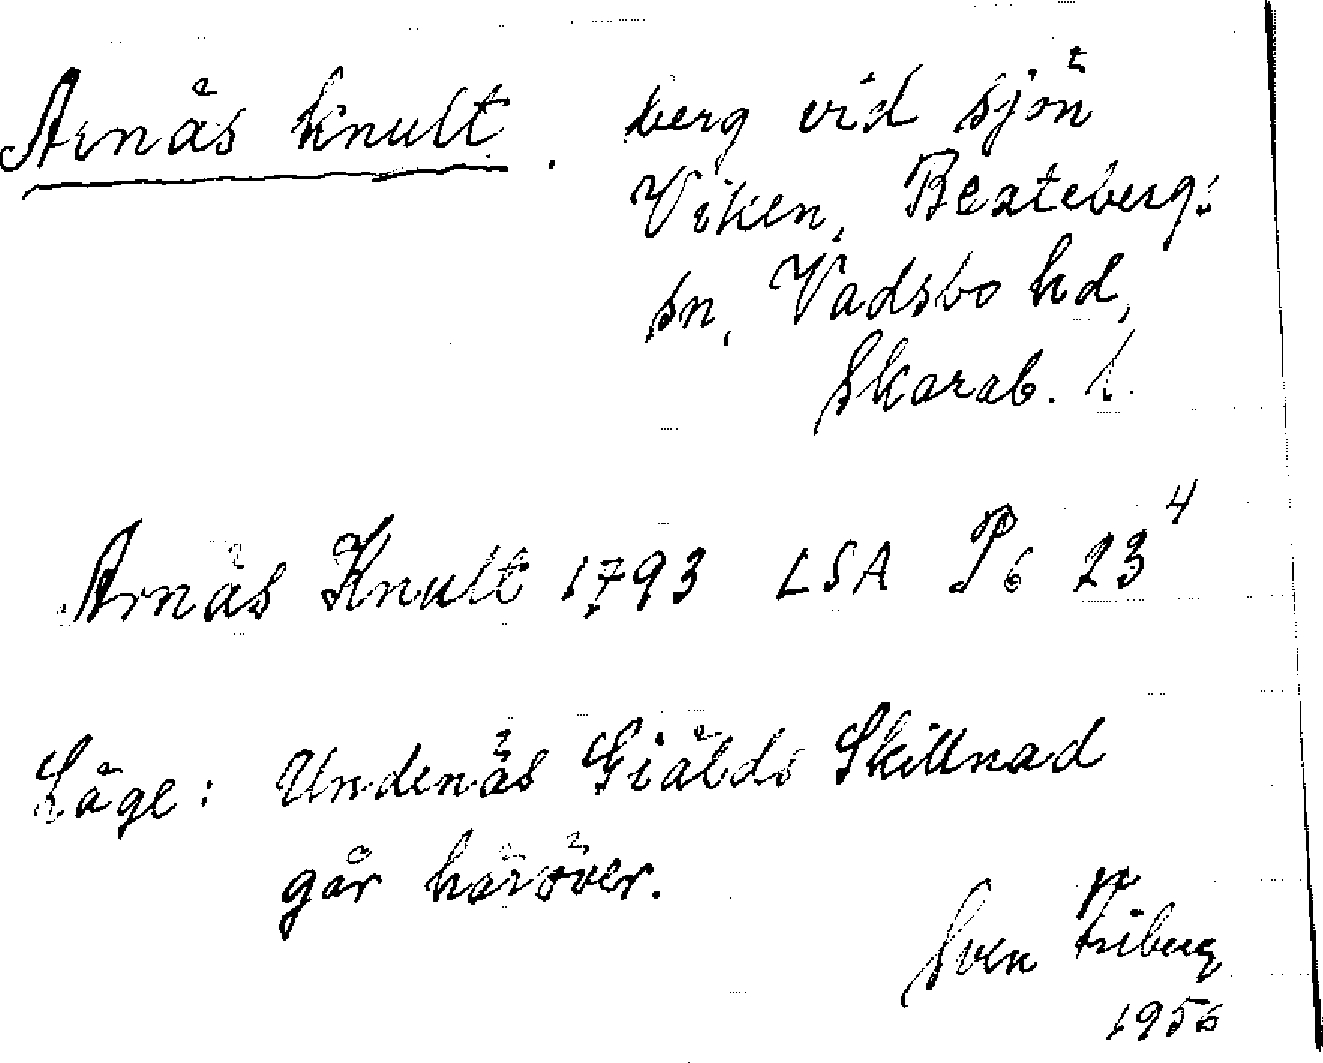 Arnäs knult. berg vid sjön
Viken, Beateberg:s
sn, Vadsbo hd,
Skarab. l.
Arnäs Knult 1793 LSA P6 23⁴
Läge: Undenäs Giälds Skillnad
går häröver.
Sven Friberg
1956